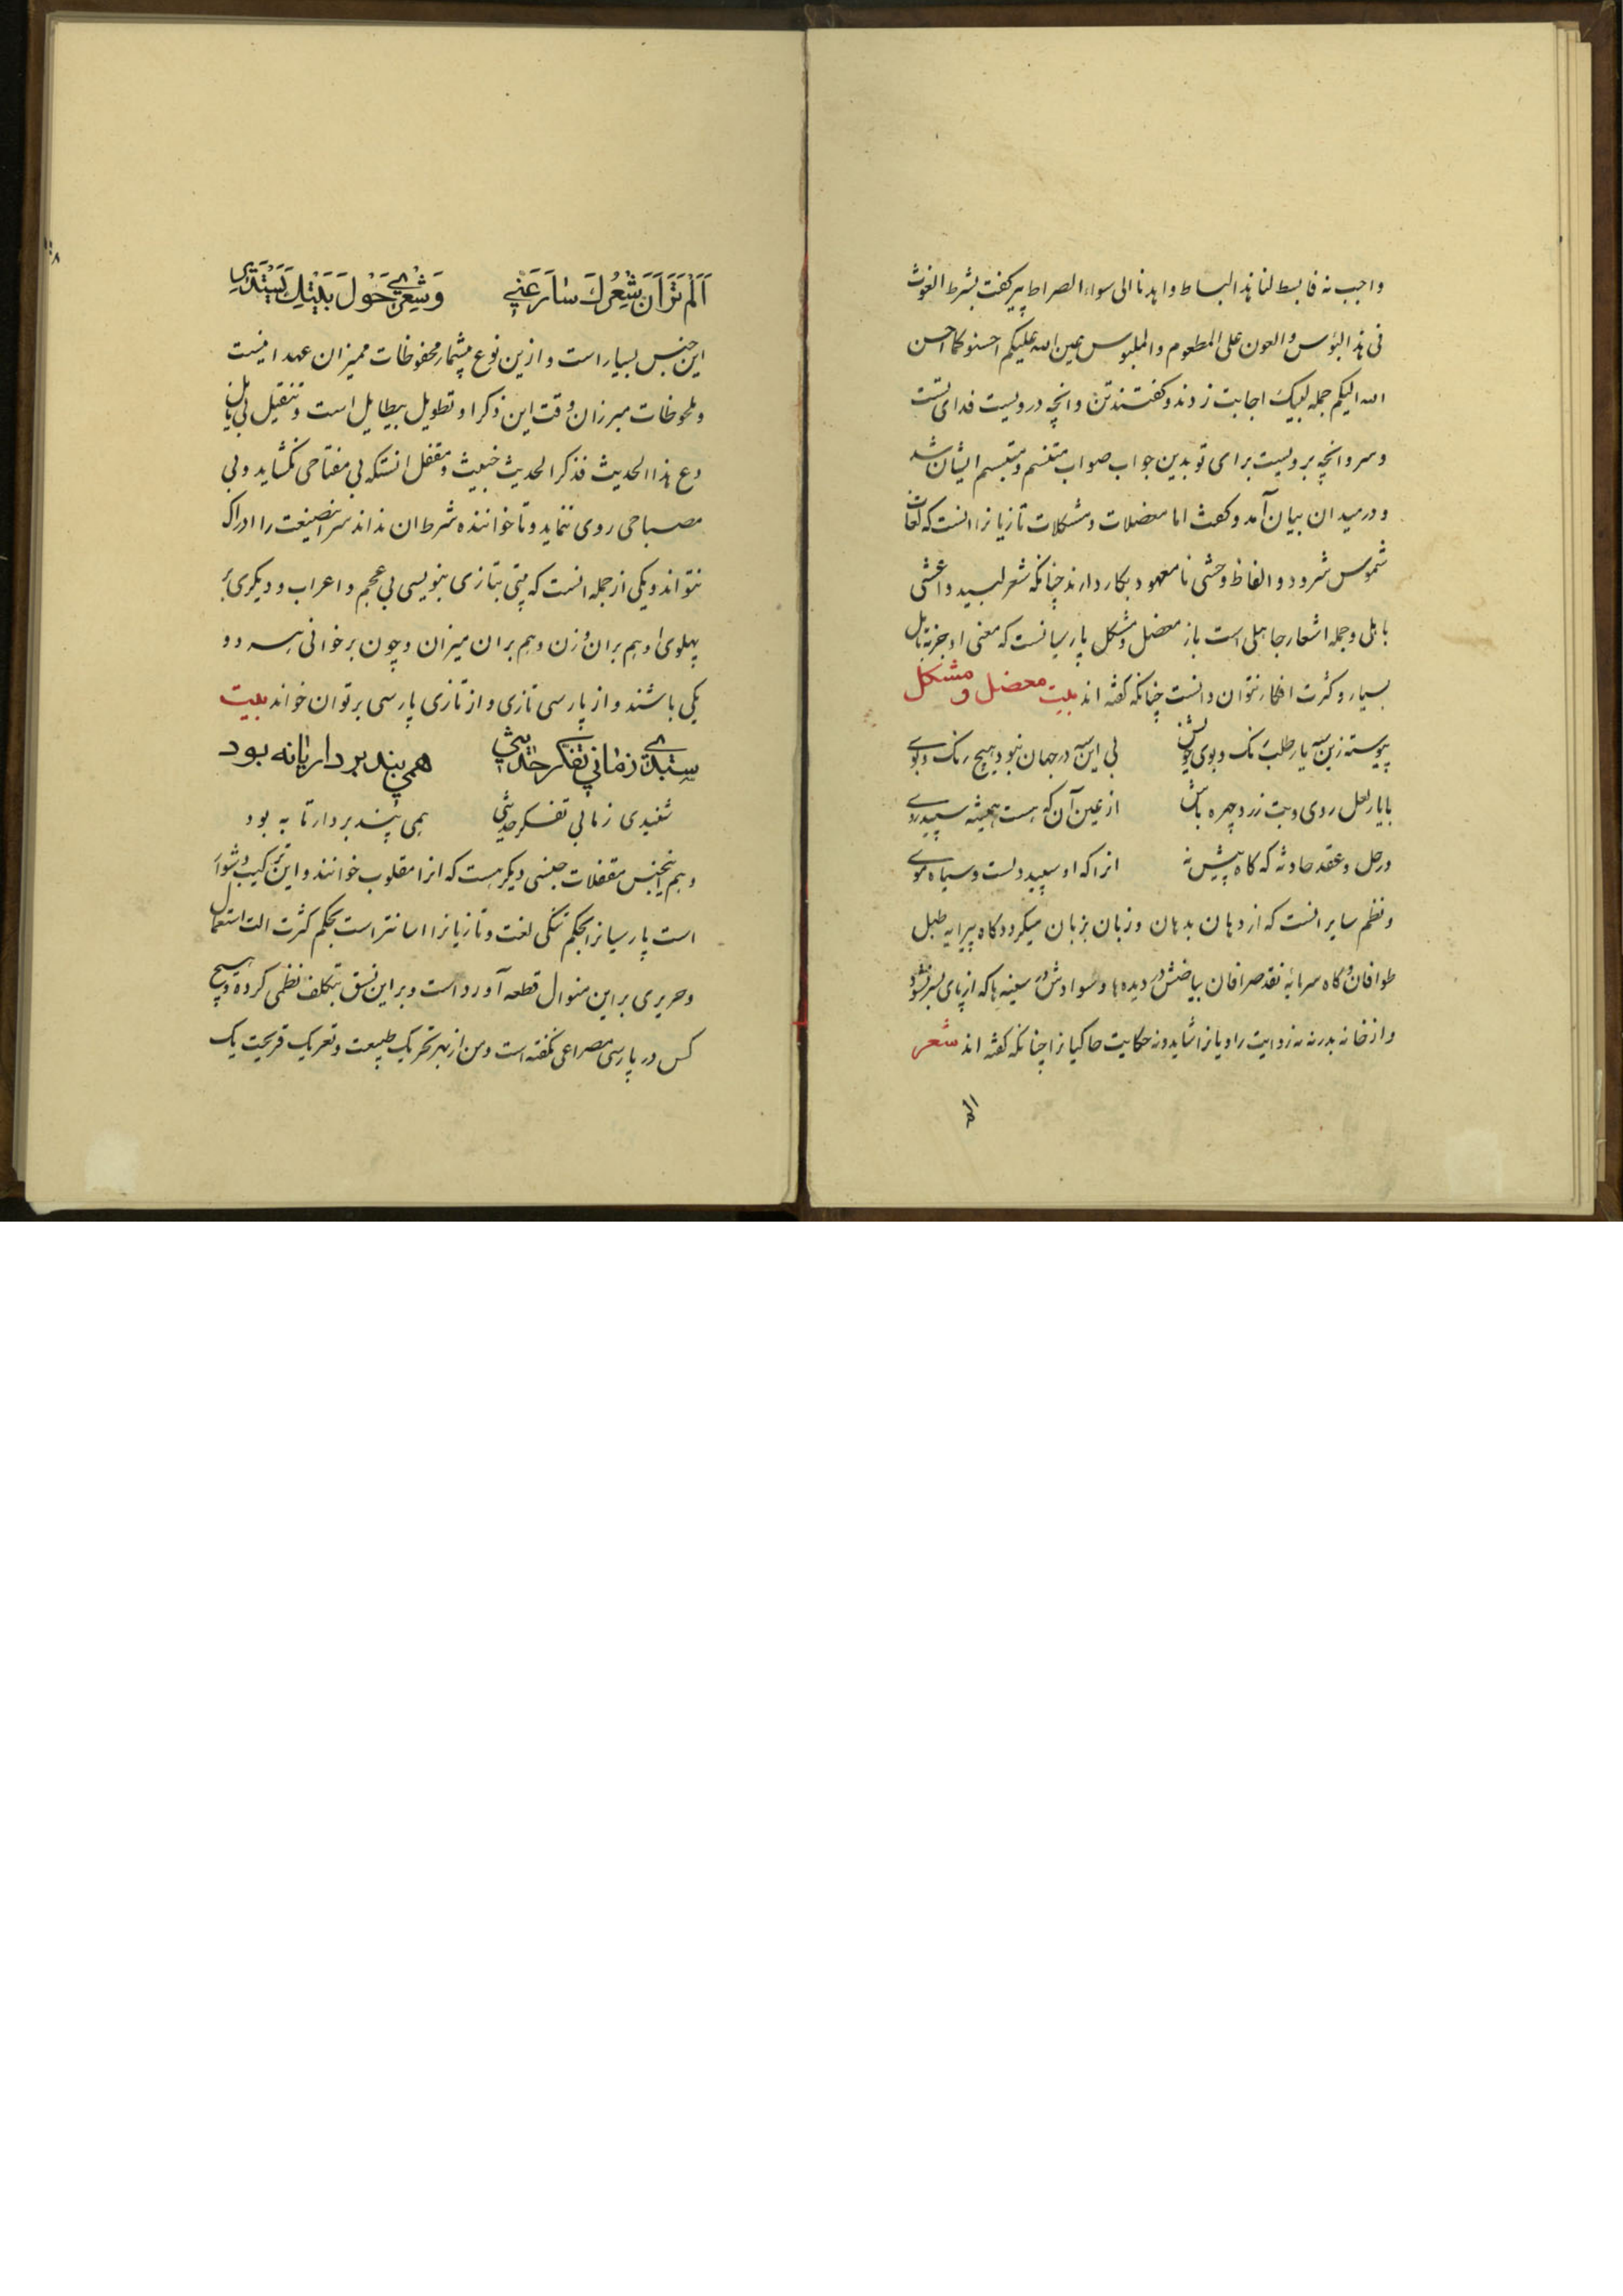 واجب نه فابسط لنا هذا البساط واهدنا الی سواء الصراط پیر کفت بشرط الغوث
فی هذا البؤس والعون علی المطعوم والملبوس عین الله علیکم احسنوکما احسن
الله الیکم جمله لبیک اجابت زدند و کفتند تن وانچه درویست فدای تست
و سر و انچه برویست برای تو بدین جواب صواب متنسم و متبسم ایشان شد
و در میدان بیان آمد و کفت اما معضلات و مشکلات تازیانرا انست که لغات
شموس شرود و الفاظ وحشی نامعهود بکار دارند چنانکه شعر لبید و اعشی
باهل و جمله اشعار جاهلی است باز معضل و مشکل پارسیانست که معنی او جز بتامل
بسیار و کثرت افکار نتوان دانست چنانکه کفته اند بیت معضل و مشکل
پیوسته زین سه یار طلب رنک و بوی خوش بی این سه در جهان نبود هیچ رنک و بوی
با یار لعل روی و بت زرد چهره باش از عین آن که هست همیشه سپید روی
در حل و عقد حادثه که کاه پیش نه انرا که او سپید دلست و سیاه موی
و نظم سایر انست که از دهان بدهان و زبان بزبان میکرود کاه پیرایه طبل
طوافان و کاه سرمایه نقد صرافان بیاضش در دیده ها و سوادش در سفینه ها که از پای بسر نشود
و از خانه بدر نه نه روایت راویانرا شاید و نه حکایت حاکیانرا چنانکه کفته اند شعر
الم
اَلَمْ تَرَ اَنَّ شِعْرُكَ سَارَ عَنِّي وَشِعْرِي حَوْلَ بَيْتِكَ يَسْتَدِيرُ
این جنس بسیار است و ازین نوع بیشمار محفوظات ممیزان عهد انیست
و ملحوظات مبرزان وقت این ذکر او تطویل بیطایل است و تثقیل بی نایل
دع هذا الحدیث فذکر الحدیث خبیث و مقفل انستکه بی مفتاحی نکشاید و بی
مصباحی روی ننماید و تا خواننده شرط ان نداند سر انصنیعت را ادراک
نتواند و یکی از جمله انست که بیتی بتازی بنویسی بی عجم و اعراب و دیکری بر
پهلوی او هم بران وزن و هم بران میزان و چون برخوانی هر دو
یکی باشند و از پارسی تازی و از تازی پارسی برتوان خواند بیت
ستبدی زمانی تفکر حدیثی همی بند بردار تا نه بود
شنیدی زمانی تفکر حدیثی همی پند بردار تا به بود
و هم اینجنس مقفلات جنسی دیکر هست که انرا مقلوب خوانند و این ترکیب دشوار
است پارسیانرا بحکم تنکی لغت و تازیانرا اسانتر است بحکم کثرت الت استعمال
و حریری برین منوال قطعه آورد است و بر این نسق بتکلف نظمی کرده و هیچ
کس در پارسی مصراعی نکفته است و من از بهر تحریک طبیعت و تعریک قریحت یک